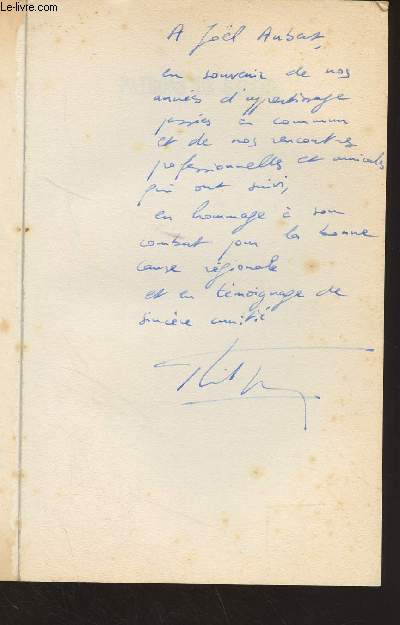 Le-livre.com
A Joël Aubert,
en souvenir de nos
années d'apprentissage
passées en commun
et de nos rencontres
professionnelles et amicales
qui ont suivi,
en hommage à son
combat pour la bonne
cause régionale
et en témoignage de
sincère amitié